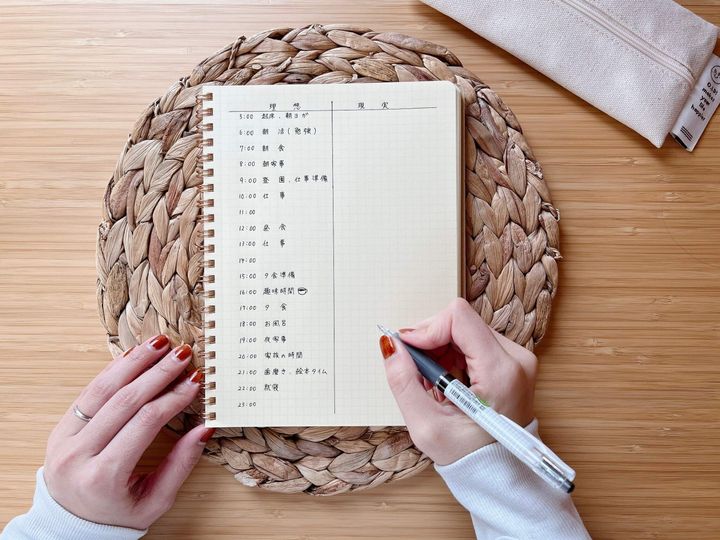 理想 現実
5:00 起床、朝ヨガ
6:00 朝活(勉強)
7:00 朝食
8:00 朝家事
9:00 登園、仕事準備
10:00 仕事
11:00
12:00 昼食
13:00 仕事
14:00
15:00 夕食準備
16:00 趣味時間
17:00 夕食
18:00 お風呂
19:00 夜家事
20:00 家族の時間
21:00 歯磨き、絵本タイム
22:00 就寝
23:00